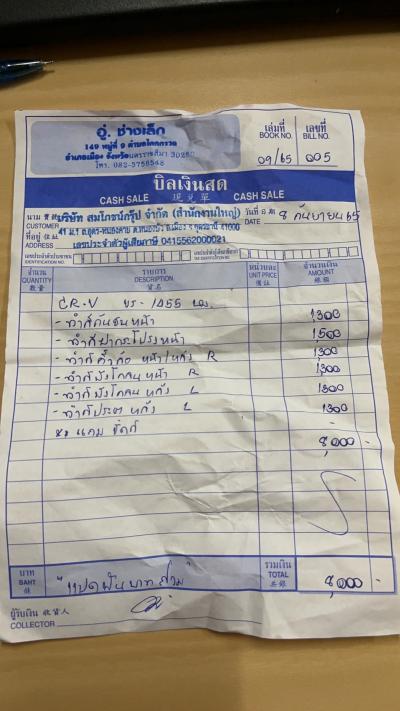 อู่ ช่างเล็ก
149 หมู่ที่ 9 ตำบลโคกกรวด
อำเภอเมือง จังหวัดนครราชสีมา 30280
โทร. 082-5758548
เล่มที่ BOOK NO. 09/65
เลขที่ BILL NO. 005
บิลเงินสด
CASH SALE 現兌單 CASH SALE
นาม CUSTOMER บริษัท สมโภชน์กรุ๊ป จำกัด (สำนักงานใหญ่)
วันที่ DATE 8 กันยายน 65
ที่อยู่ ADDRESS 41 ม.1 ถ.อุดร-หนองคาย อ.เมือง จ.อุดรธานี 41000
เลขประจำตัวผู้เสียภาษี 0415562000021
IDENTIFICATION NO.
จำนวน QUANTITY 數量 รายการ DESCRIPTION 貨名 หน่วยละ UNIT PRICE 價註 จำนวนเงิน AMOUNT 銀額
CR.V 1055
- ทำสีกันชนหน้า 1,300
- ทำสีฝากระโปรงหน้า 1,500
หน้า/หลัง R 1,300
- ทำสีบังโคลนหน้า R 1,300
- ทำสีบังโคลนหลัง L 1,300
- ทำสีประตูหลัง L 1,300
8,000 -
บาท BAHT 銖 "แปดพันบาทถ้วน" รวมเงิน TOTAL 共銀 8,000 -
ผู้รับเงิน 收貨人
COLLECTOR